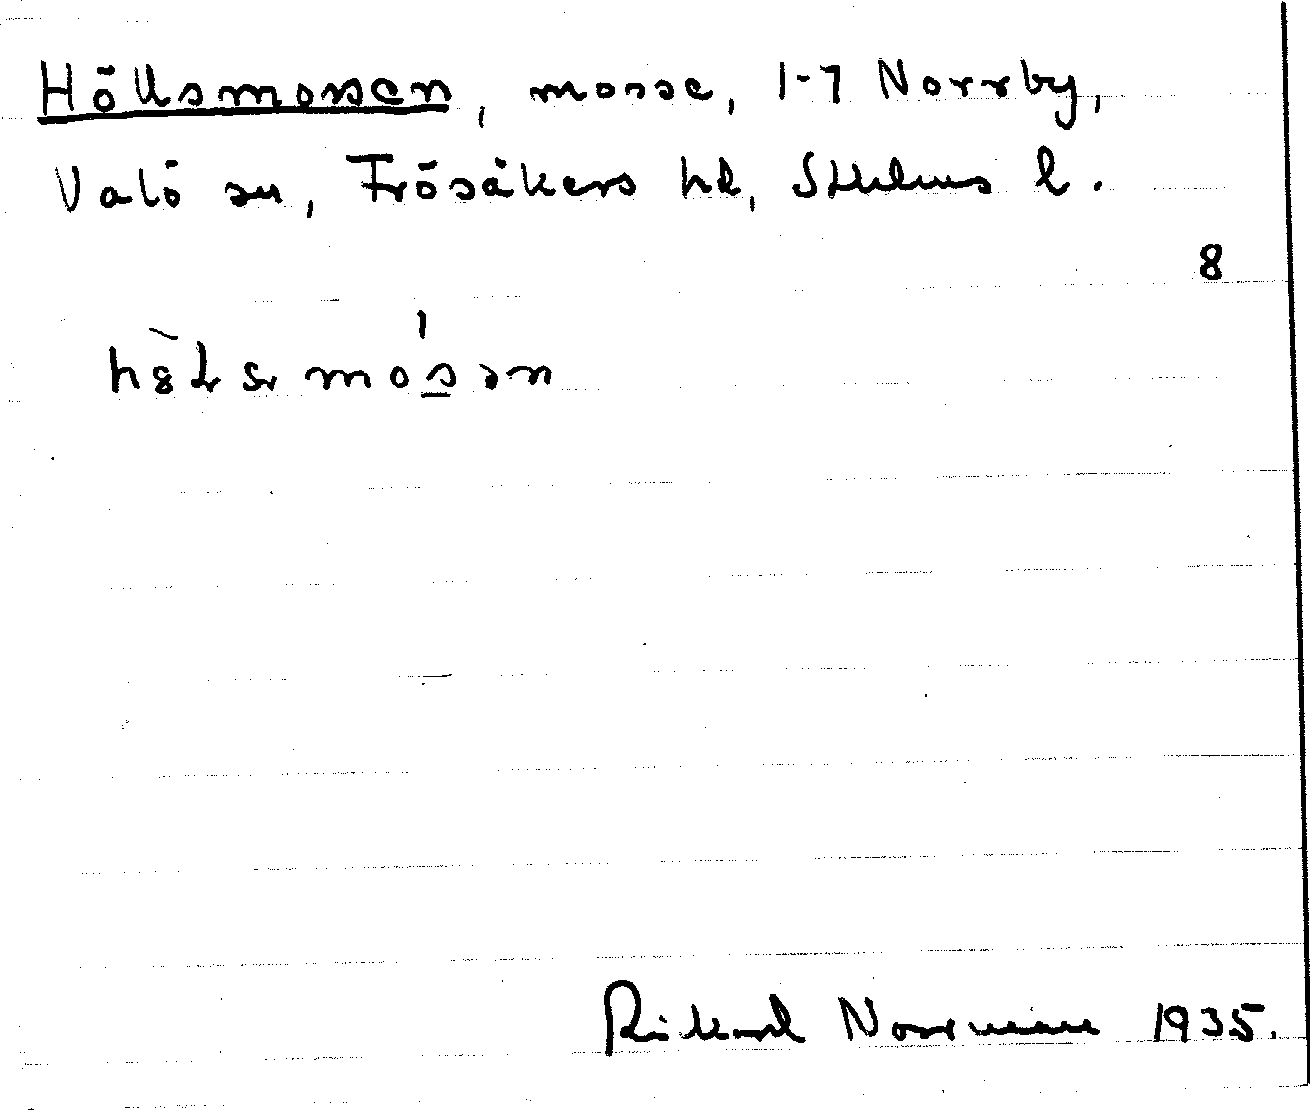 Höllsmossen, mosse, 1-7 Norrby,
Valö sn, Frösåkers hd, Sthlms l.
8
Rikard Norrman 1935.